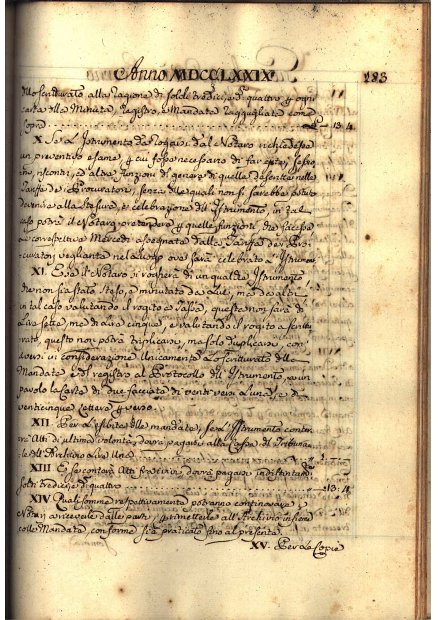 Anno MDCCLXXIX. 283
lo scritturato alla ragione di soldi tredici, e d. quattro per ogni
carta della Minuta, Registro, e Mandata ragguagliata come
sopra 13:4
X. Se l'Istrumento da rogarsi dal Notaro richiedesse
un preventivo esame, per cui fosse necessario di far
riscontri, ed altre funzioni di genere di quelle descritte nelle
Tariffe de Procuratori, senza delle quali non si sarebbe potuto
devenire alla stesura, e celebrazione dell'Istrumento, in tal
caso potrà il Notaro pretendere per quelle funzioni, che facesse
le correspettive Mercedi assegnate dalla Tariffa de Pro-
curatori vegliante nel luogo ove sarà celebrato l'Istrumento
XI. E se il Notaro si rogherà di un qualche Istrumento
che non sia stato steso, e minutato da lui, ma da altri
in tal caso valutando il rogito a Tassa, questa non sarà di
Lire sette, ma di Lire cinque, e valutando il rogito a scrittu-
rato, questo non potrà triplicarsi, ma solo duplicarsi, con
aversi in considerazione unicamente lo scritturato della
Mandata e del registro al Protocollo dell'Istrumento, a un
paolo la Carta di due facciate di venti versi l'una, e di
venticinque lettere per verso.
XII. Per l'esibita delle mandate, se l'Istrumento conter-
rà Atti di ultima volontà, dovrà pagarsi alla Cassa del Tribuna-
le dell'Archivio Lire Una
XIII. E se conterrà Atti fra i vivi, dovrà pagarsi indistintamente
soldi tredici, e d. quattro 13:4
XIV. Quali somme respettivamente potranno continovare i
Notari a ricevere dalle parti, e rimetterle all'Archivio insieme
colle Mandate, conforme si è praticato fino al presente.
XV. Per le Copie